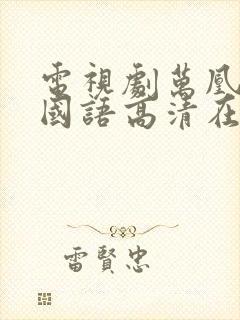 電視劇萬凰
國語高清在
雷賢忠